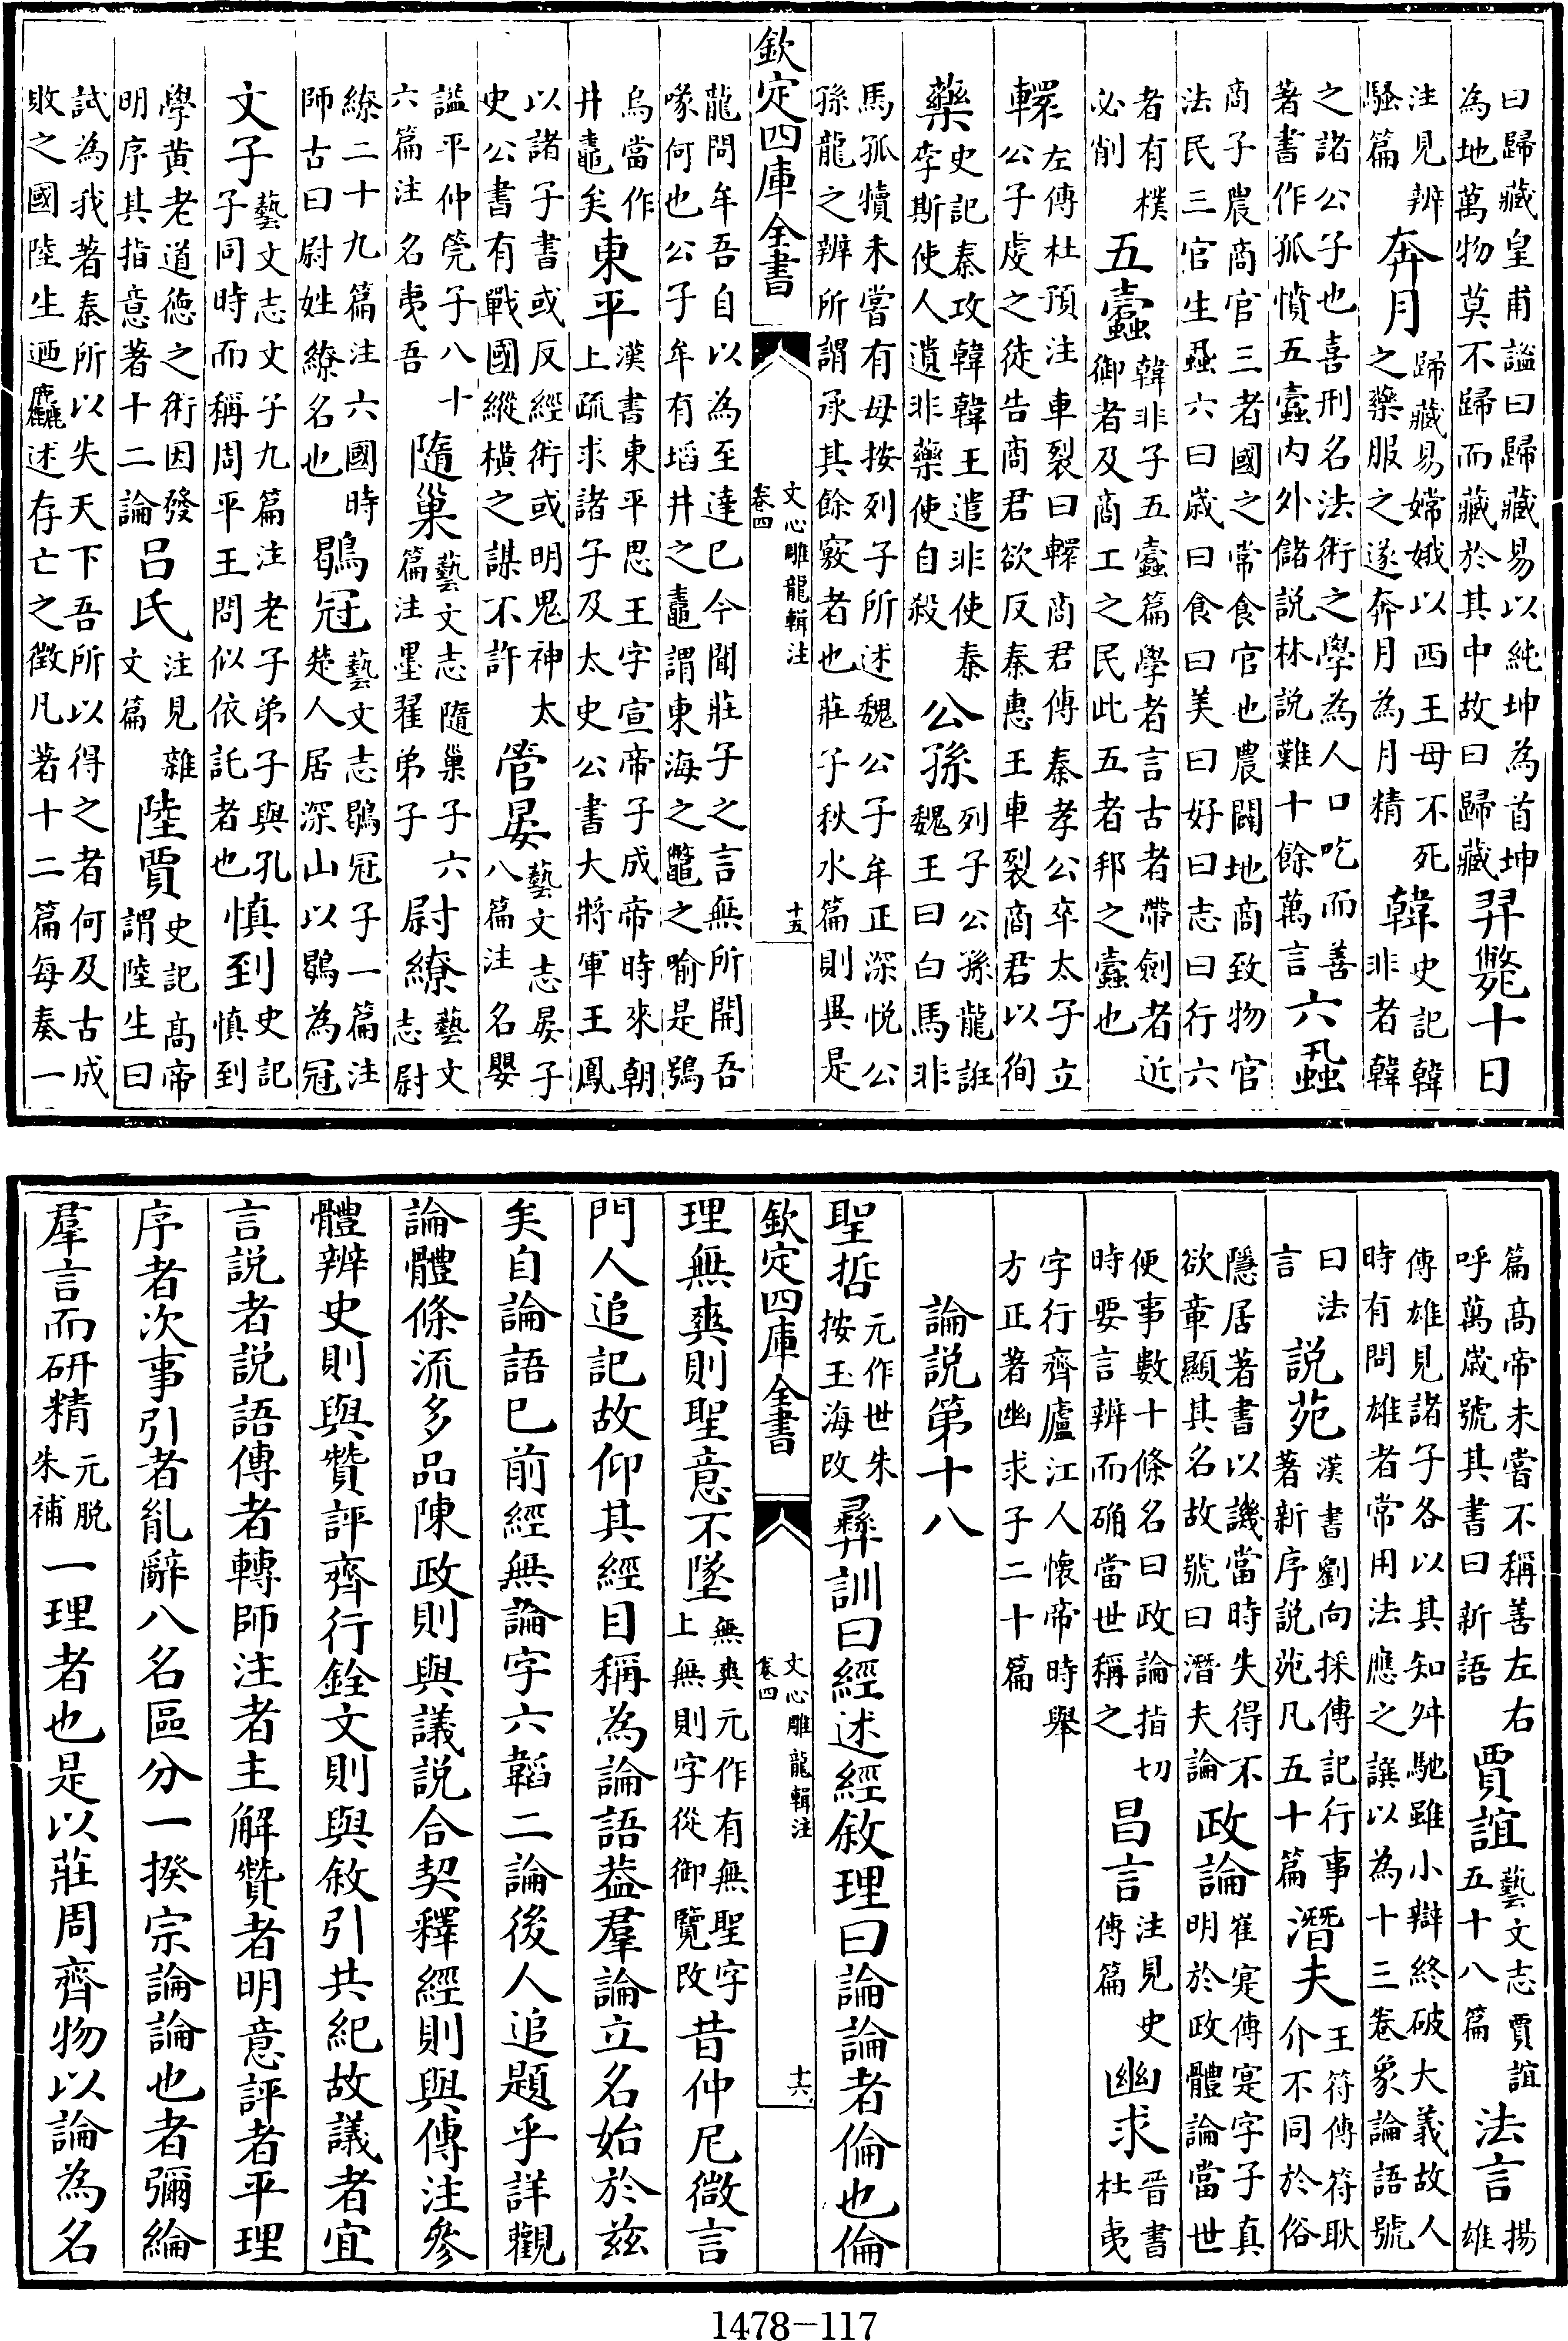 曰歸藏皇甫謐曰歸藏易以純坤為首坤為地萬物莫不歸而藏於其中故曰歸藏羿斃十日
注見辨騷篇奔月歸藏易嫦娥以西王母不死之藥服之遂奔月為月精韓史記韓非者韓
之諸公子也喜刑名法術之學為人口吃而善著書作孤憤五蠹内外儲説林説難十餘萬言六蝨
商子農商官三者國之常食官也農闢地商致物官法民三官生蝨六曰歲曰食曰美曰好曰志曰行六
者有樸必削五蠹韓非子五蠹篇學者言古者帶劍者近御者及商工之民此五者邦之蠹也
轘左傳杜預注車裂曰轘商君傳秦孝公卒太子立公子虔之徒告商君欲反秦惠王車裂商君以徇
藥史記秦攻韓韓王遣非使秦李斯使人遺非藥使自殺公孫列子公孫龍誑魏王曰白馬非
馬孤犢未嘗有母按列子所述魏公子牟正深悦公孫龍之辨所謂承其餘竅者也莊子秋水篇則異是
欽定四庫全書 文心雕龍輯注 卷四 十五
龍問牟吾自以為至達已今聞莊子之言無所開吾喙何也公子牟有埳井之鼃謂東海之鼈之喻是鴞
烏當作井鼃矣東平漢書東平思王字宣帝子成帝時來朝上疏求諸子及太史公書大將軍王鳳
以諸子書或反經術或明鬼神太史公書有戰國縱横之謀不許管晏藝文志晏子八篇注名嬰
謚平仲筦子八十六篇注名夷吾隨巢藝文志隨巢子六篇注墨翟弟子尉繚藝文志尉
繚二十九篇注六國時師古曰尉姓繚名也鶡冠藝文志鶡冠子一篇注楚人居深山以鶡為冠
文子藝文志文子九篇注老子弟子與孔子同時而稱周平王問似依託者也慎到史記慎到
學黄老道德之術因發明序其指意著十二論吕氏注見雜文篇陸賈史記髙帝謂陸生曰
試為我著秦所以失天下吾所以得之者何及古成敗之國陸生迺麤述存亡之徵凡著十二篇每奏一
篇髙帝未嘗不稱善左右呼萬歲號其書曰新語賈誼藝文志賈誼五十八篇法言揚雄
傳雄見諸子各以其知舛馳雖小辯終破大義故人時有問雄者常用法應之譔以為十三卷象論語號
曰法言説苑漢書劉向採傳記行事著新序説苑凡五十篇潛夫王符傳符耿介不同於俗
隱居著書以譏當時失得不欲章顯其名故號曰潛夫論政論崔寔傳寔字子真明於政體論當世
便事數十條名曰政論指切時要言辨而确當世稱之昌言注見史傳篇幽求晉書杜夷
字行齊廬江人懷帝時舉方正著幽求子二十篇
論説第十八
聖哲元作世朱按玉海改彞訓曰經述經敘理曰論論者倫也倫
欽定四庫全書 文心雕龍輯注 卷四 十六
理無爽則聖意不墜無爽元作有無聖字上無則字從御覽改昔仲尼微言
門人追記故仰其經目稱為論語葢羣論立名始於兹
矣自論語已前經無論字六韜二論後人追題乎詳觀
論體條流多品陳政則與議説合契釋經則與傳注參
體辨史則與贊評齊行銓文則與敘引共紀故議者宜
言説者説語傳者轉師注者主解贊者明意評者平理
序者次事引者胤辭八名區分一揆宗論論也者彌綸
羣言而研精元脱朱補一理者也是以莊周齊物以論為名
1478-117